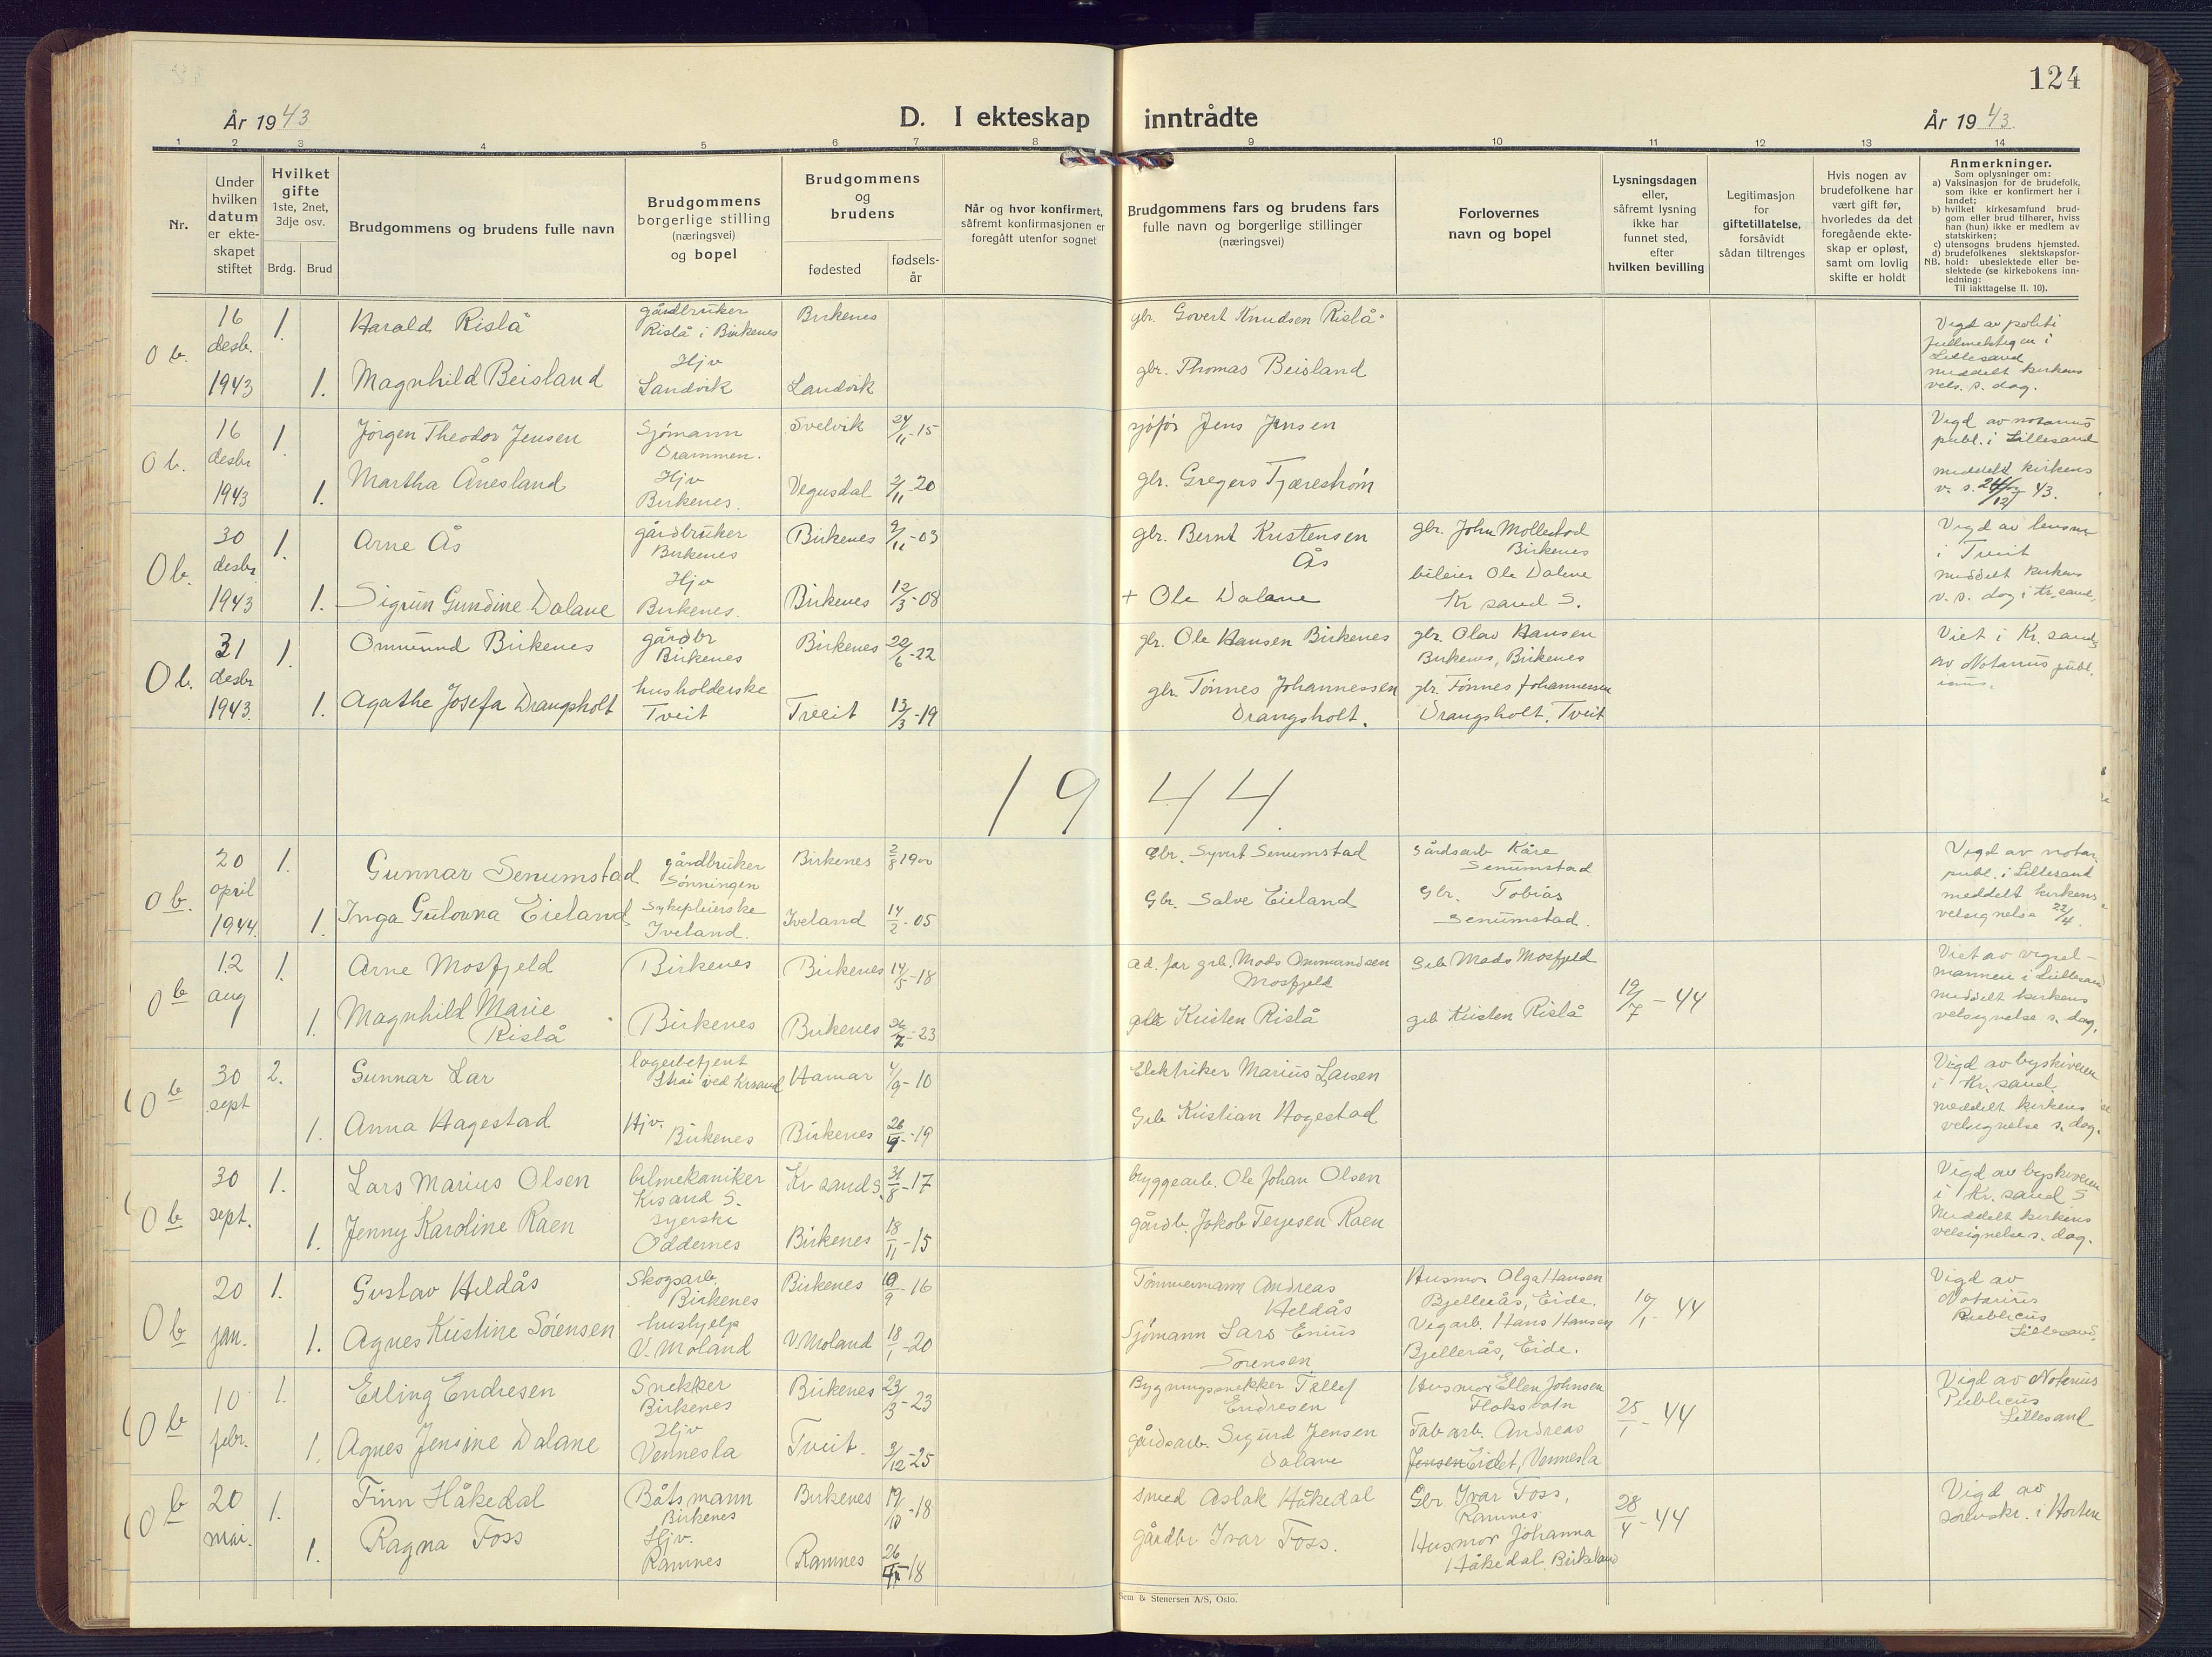 124
År 1943
D. I ekteskap inntrådte
År 1943
1 2 3 4 5 6 7 8 9 10 11 12 13 14
Nr.
Under
hvilken
datum
er ekte-
skapet
stiftet
Hvilket
gifte
1ste, 2net,
3dje osv.
Brdg. Brud
Brudgommens og brudens fulle navn
Brudgommens
borgerlige stilling
(næringsvei)
og bopel
Brudgommens
og
brudens
fødested
fødsels-
år
Når og hvor konfirmert,
såfremt konfirmasjonen er
foregått utenfor sognet
Brudgommens fars og brudens fars
fulle navn og borgerlige stillinger
(næringsvei)
Forlovernes
navn og bopel
Lysningsdagen
eller,
såfremt lysning
ikke har
funnet sted,
efter
hvilken bevilling
Legitimasjon
for
giftetillatelse,
forsåvidt
sådan tiltrenges
Hvis nogen av
brudefolkene har
vært gift før,
hvorledes da det
foregående ekte-
skap er opløst,
samt om lovlig
skifte er holdt
Anmerkninger.
Som oplysninger om:
a) Vaksinasjon for de brudefolk,
som ikke er konfirmert her i
landet;
b) hvilket kirkesamfund brud-
gom eller brud tilhører, hviss
han (hun) ikke er medlem av
statskirken;
c) utensogns brudens hjemsted.
d) brudefolkenes slektskapsfor-
NB. hold: ubeslektede eller be-
slektede (se kirkebokens inn-
ledning:
Til iakttagelse II. 10).
O b.
16
desb.
1943
1.
1.
Harald Rislå
Magnhild Beisland
gårdbruker
Rislå i Birkenes
Hjv
Landvik
Birkenes
Landvik
gbr. Govert Knudsen Rislå
gbr. Thomas Beisland
Vigd av politi
fullmektigen i
Lillesand
meddelt kirkens
vels. s. dag.
O b.
16
desbr
1943
1.
1.
Jörgen Theodor Jensen
Martha Ånesland
Sjömann
Drammen.
Hjv
Birkenes.
Svelvik
Vegusdal
24/11-15
2/11 20
sjöför Jens Jensen
gbr. Gregers Tjæreström
Vigd av notarius
publ. i Lillesand
meddelt kirkens
v. s. 43.
O b.
30
desbr
1943
1.
1.
Arne Ås
Sigrun Gundine Dalane
gårdbruker
Birkenes
Hjv
Birkenes.
Birkenes
Birkenes
9/11-03
12/3-08
gbr. Bernt Kristensen
Ås
+ Ole Dalane
gbr. John Mollestad
Birkenes
bileier Ole Dalene
Kr sand S.
Vigd av lensm
i Tveit
meddelt kirkens
v. s. dag i Kr. sand.
O b.
31
desbr
1943.
1.
1.
Ommund Birkenes
Agathe Josefa Drangsholt
gårdbr
Birkenes
husholderske
Tveit
Birkenes
Tveit
22/6-22
13/3-19
gbr. Ole Hansen Birkenes
gbr. Tönnes Johannessen
Drangsholt.
gbr. Olav Hansen
Birkenes, Birkenes
gbr. Tönnes Johannessen
Drangsholt, Tveit
Viet i Kr. sand S
av Notarius publ.
1944
O b.
20
april
1944.
1.
1.
Gunnar Senumstad
Inga Gulovna Eieland
gårdbruker
Sönningen
Sykepleierske
Iveland.
Birkenes
Iveland
2/8 1900
14/2-05
Gbr. Syvert Senumstad
Gbr. Salve Eieland
Gårdsarb Kåre
Senumstad
Gbr. Tobias
Senumstad.
Vigd av notar.
publ. i Lillesand
meddelt kirkens
velsignelse 22/4.
O b
12
aug
1.
1.
Arne Mosfjeld
Magnhild Marie
Rislå
Birkenes
Birkenes
Birkenes
Birkenes
14/5-18
26/7-23
ad. far grb. Mads Ommundsen
Mosfjeld
Kristen Rislå
Grb Mads Mosfjeld
grb Kristen Rislå
19/7-44
Viet av vigsel-
mannen i Lillesand
meddelt kirkens
velsignelse s. dag.
O b
30
sept
2.
1.
Gunnar Lar
Anna Hagestad
lagerbetjent
Strai ved Krsand
Hjv.
Birkenes
Hamar
Birkenes
4/9-10
26/9-19
Elektriker Marius Larsen
Grb Kristian Hagestad
Vigd av byskriveren
i Kr. sand
meddelt kirkens
velsignelse s. dag.
O b
30
sept.
1.
1.
Lars Marius Olsen
Jenny Karoline Raen
bilmekaniker
Krsand S.
syerske
Oddernes
Kr sand S.
Birkenes
31/8-17
18/11-15
bryggearb. Ole Johan Olsen
gårdb. Jakob Terjesen Raen
Vigd av byskriveren
i Kr. sand S
Meddelt kirkens
velsignelse s. dag.
O b
20
jan.
1.
1.
Gustav Heldås
Agnes Kristine Sörensen
Skogsarb.
Birkenes
hushjelp
V. Moland
Birkenes
V. Moland
19/9-16
18/1-20
Tömmermann Andreas
Heldås
Sjömann Lars Enius
Sörensen
Husmor Olga Hansen
Bjellerås, Eide.
Vegarb. Hans Hansen
Bjellerås, Eide.
10/1-44
Vigd av
Notarius
Publicus
Lillesand.
O b
10
febr.
1.
1.
Erling Endresen
Agnes Jensine Dalane
Snekker
Birkenes
Hjv
Vennesla
Birkenes
Tveit.
23/3-23
3/12-25
Bygningssnekker Tellef
Endresen
gårdsarb. Sigurd Jensen
Dalane
Husmor Ellen Johnsen
Flaksvatn
Fab arb. Andreas
Jensen Eidet, Vennesla
25/1-44
Vigd av Notarius
Publicus
Lillesand
O b
20
mai.
1.
1.
Finn Håkedal
Ragna Foss
Båtsmann
Birkenes
Hjv.
Ramnes
Birkenes
Ramnes
19/10-18
Smed Aslak Håkedal
gårdbr Ivar Foss.
Gbr. Ivar Foss,
Ramnes
Husmor Johanna
Håkedal, Birkeland
28/4-44
Vigd av
sorenskr. i Horten
Sem & Stenersen A/S, Oslo.